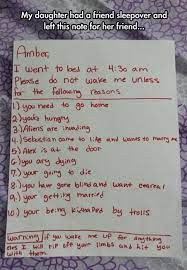 My daughter had a friend sleepover and
left this note for her friend...
Amber,
I went to bed at 4:30 am
Please do not wake me unless
for the following reasons
1) you need to go home
2) your hungry
3) Aliens are invading
4) Sebastian came to life and wants to marry me
5) Alex is at the door
6) you are dying
7) your going to die
8) you have gone blind and want cereal
9) your getting married
10) your being kidnaped by trolls
Warning if you wake me up for anything
els I will rip off your limbs and hit you
with them